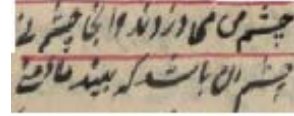 چشم من می دوزند وانجا چشم نے
چشم ان باشد که بیند مامنے